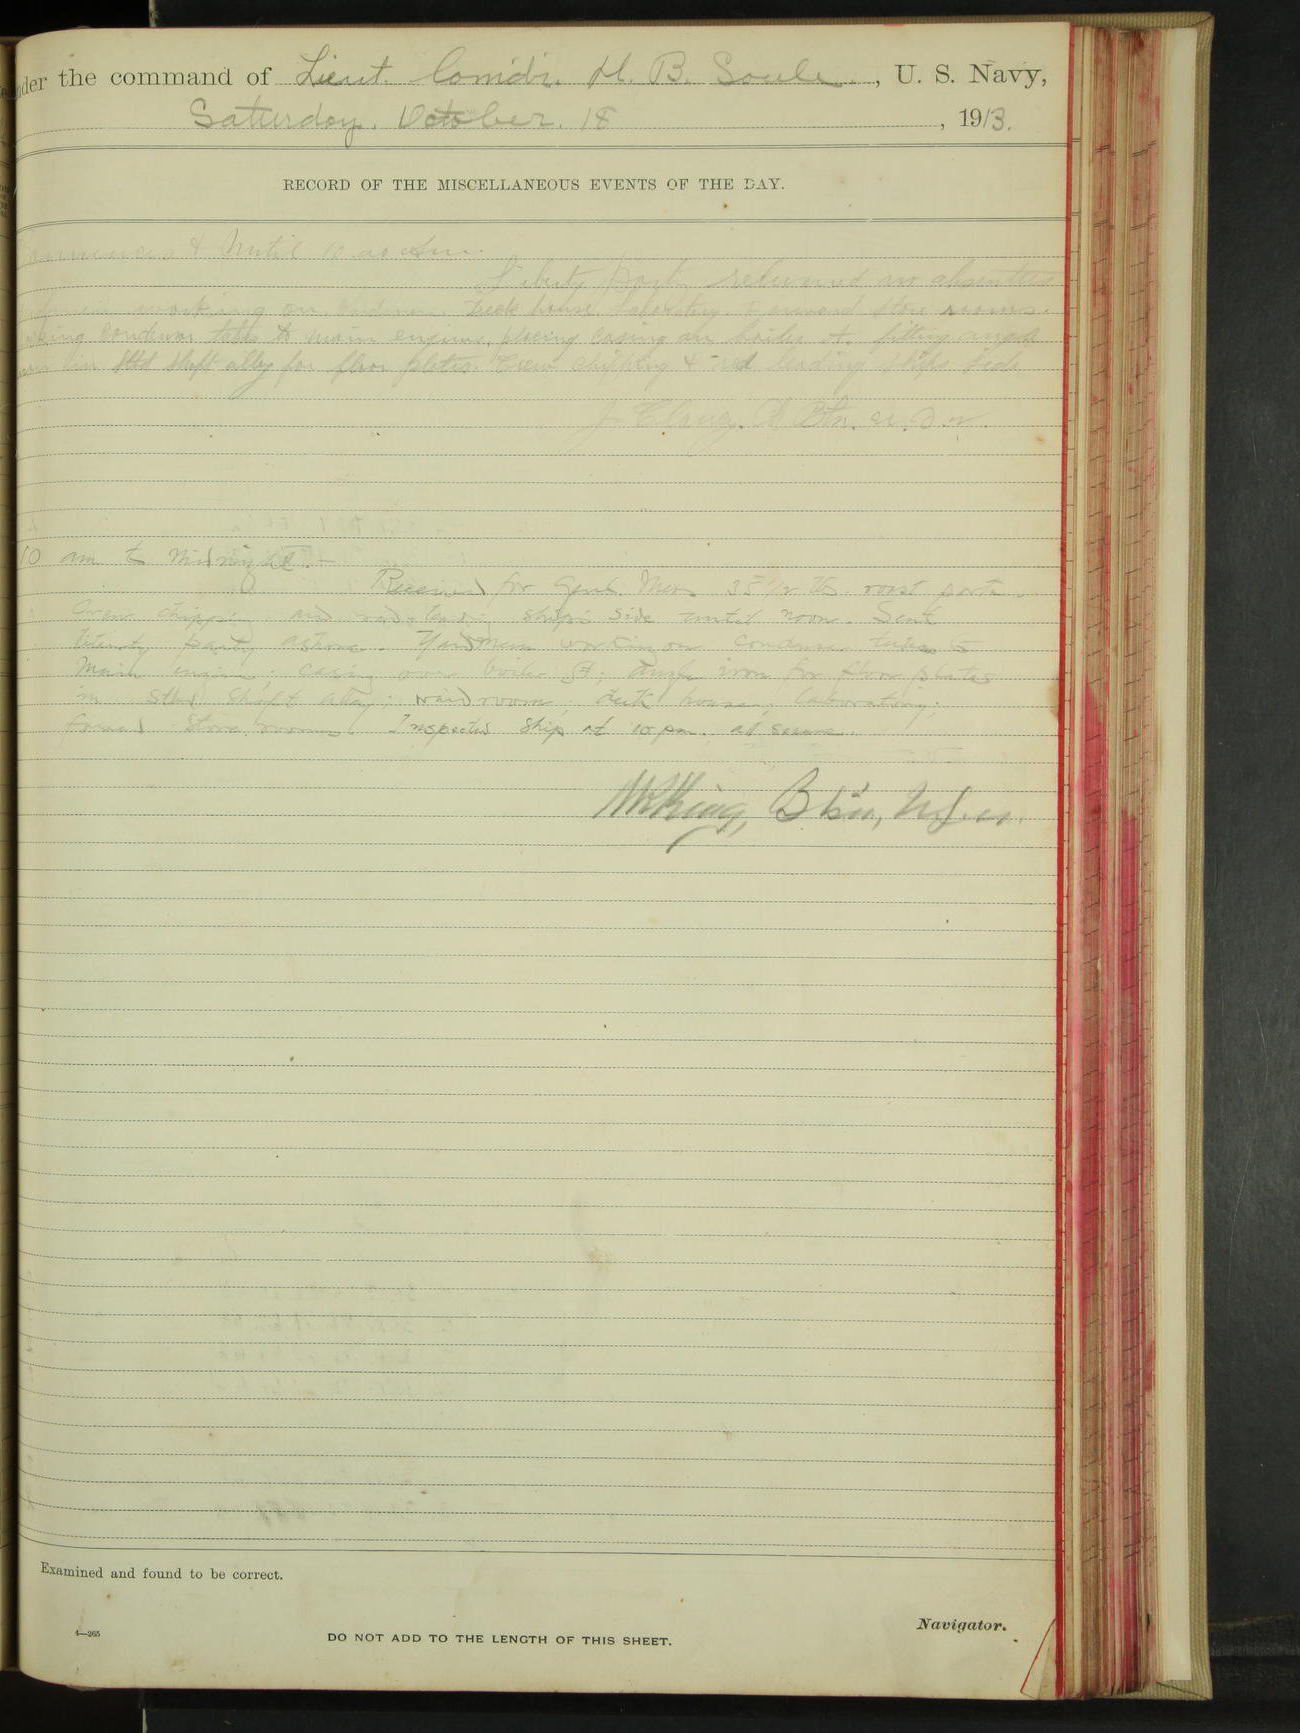 under the command of Lieut. Comdr. H. B. Soule, U. S. Navy,
Saturday, October 18, 1913.
RECORD OF THE MISCELLANEOUS EVENTS OF THE DAY.
Commences & Until 10.00 Am.
Liberty party returned no absentees
working on deck house, Laboratory forward store rooms.
condenser tubes to main engine, placing casing on boiler A. fitting angle
in Stbd Shaft alley for floor plates. Crew chipping & red leading ships side
10 am to Midnight.-
Received for Genl. Mess 35 1/2 lbs. roast pork.
Crew chipping and red leading ship's side until noon. Sent
liberty party ashore. Yardmen working on condenser tubes to
Main engine; casing over boiler A; angle iron for floor plates
in Stbd Shaft alley; wardroom; deck house; laboratory;
forward store rooms. Inspected ship at 10 pm. all secure.
King, Btsn, U.S.N.
Examined and found to be correct.
Navigator.
4—265
DO NOT ADD TO THE LENGTH OF THIS SHEET.